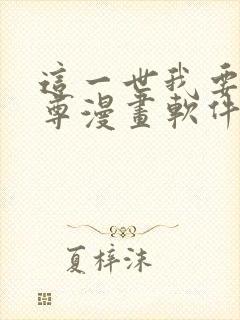 這一世我要
尊漫畫軟件
夏梓沫